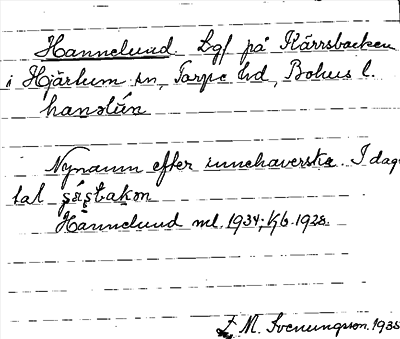 Hannelund. Lgf på Kärrsbacken
i Hjärtum sn, Torpe hd, Bohus l.
hanəlún
Nynamn efter innehaverska. I dag-
tal
Hannelund ml. 1934; kb. 1938.
E. M. Svenungsson. 1935